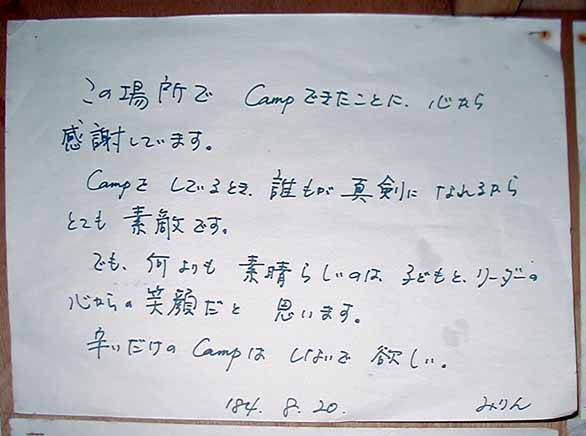 この場所で Campできたことに、心から
感謝しています。
Campを しているとき、誰もが 真剣に なれるから
とても 素敵です。
でも、何よりも 素晴らしいのは、子どもと、リーダーの
心からの 笑顔だと 思います。
辛いだけの Campは しないで 欲しい。
'84. 8. 20. みりん